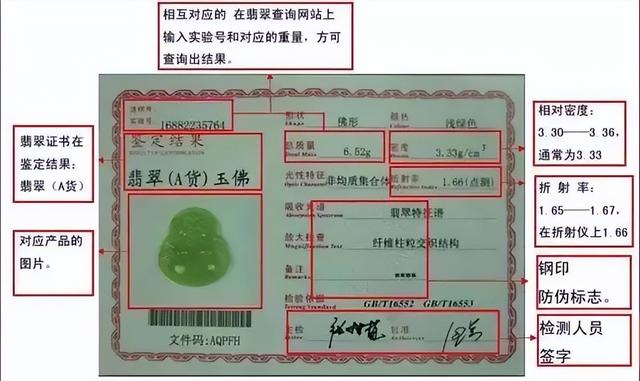 相互对应的 在翡翠查询网站上
输入实验号和对应的重量，方可
查询出结果。
翡翠证书在
鉴定结果：
翡翠（A货）
对应产品的
图片。
实验号: 16882235764
鉴定结果
翡翠(A货)玉佛
文件码:AQPFH
形状 佛形 颜色 浅绿色
总质量 6.52g 密度 3.33g/cm³
光性特征 非均质集合体 折射率 1.66(点测)
吸收光谱 翡翠特征谱
放大检查 纤维柱粒交织结构
备注
检验依据 GB/T16552 GB/T16553
主检 批准
相对密度：
3.30——3.36，
通常为3.33
折 射 率：
1.65——1.67，
在折射仪上1.66
钢印
防伪标志。
检测人员
签字